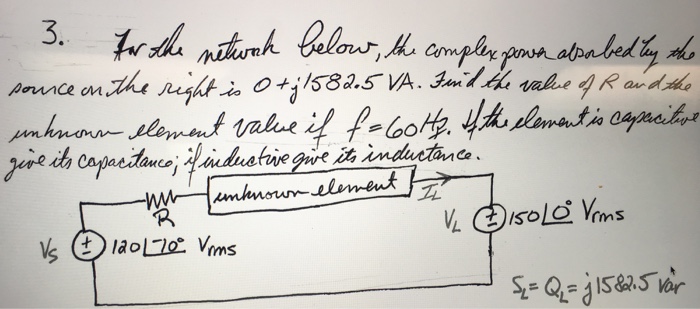 3. For the network below, the complex power absorbed by the
source on the right is 0 + j1582.5 VA. Find the value of R and the
unknown element value if f = 60 Hz. If the element is capacitive
give its capacitance; if inductive give its inductance.
unknown element
I_L
R
V_L
150∠0° Vrms
Vs
120∠-70° Vrms
S_L = Q_L = j1582.5 var